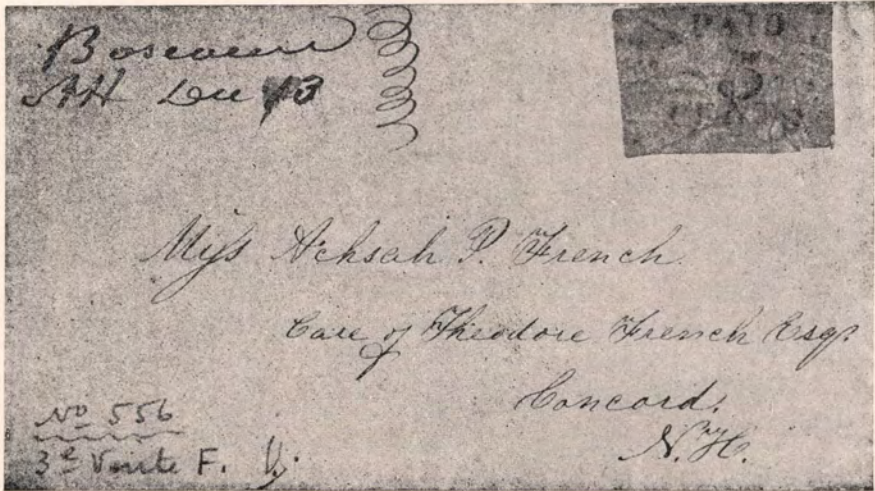 Boscawen
NH Dec 13
PAID
2
CENTS
Miss Achsah P. French
Care of Theodore French Esqr
Concord,
N.H.
No 556
3e Vente F.